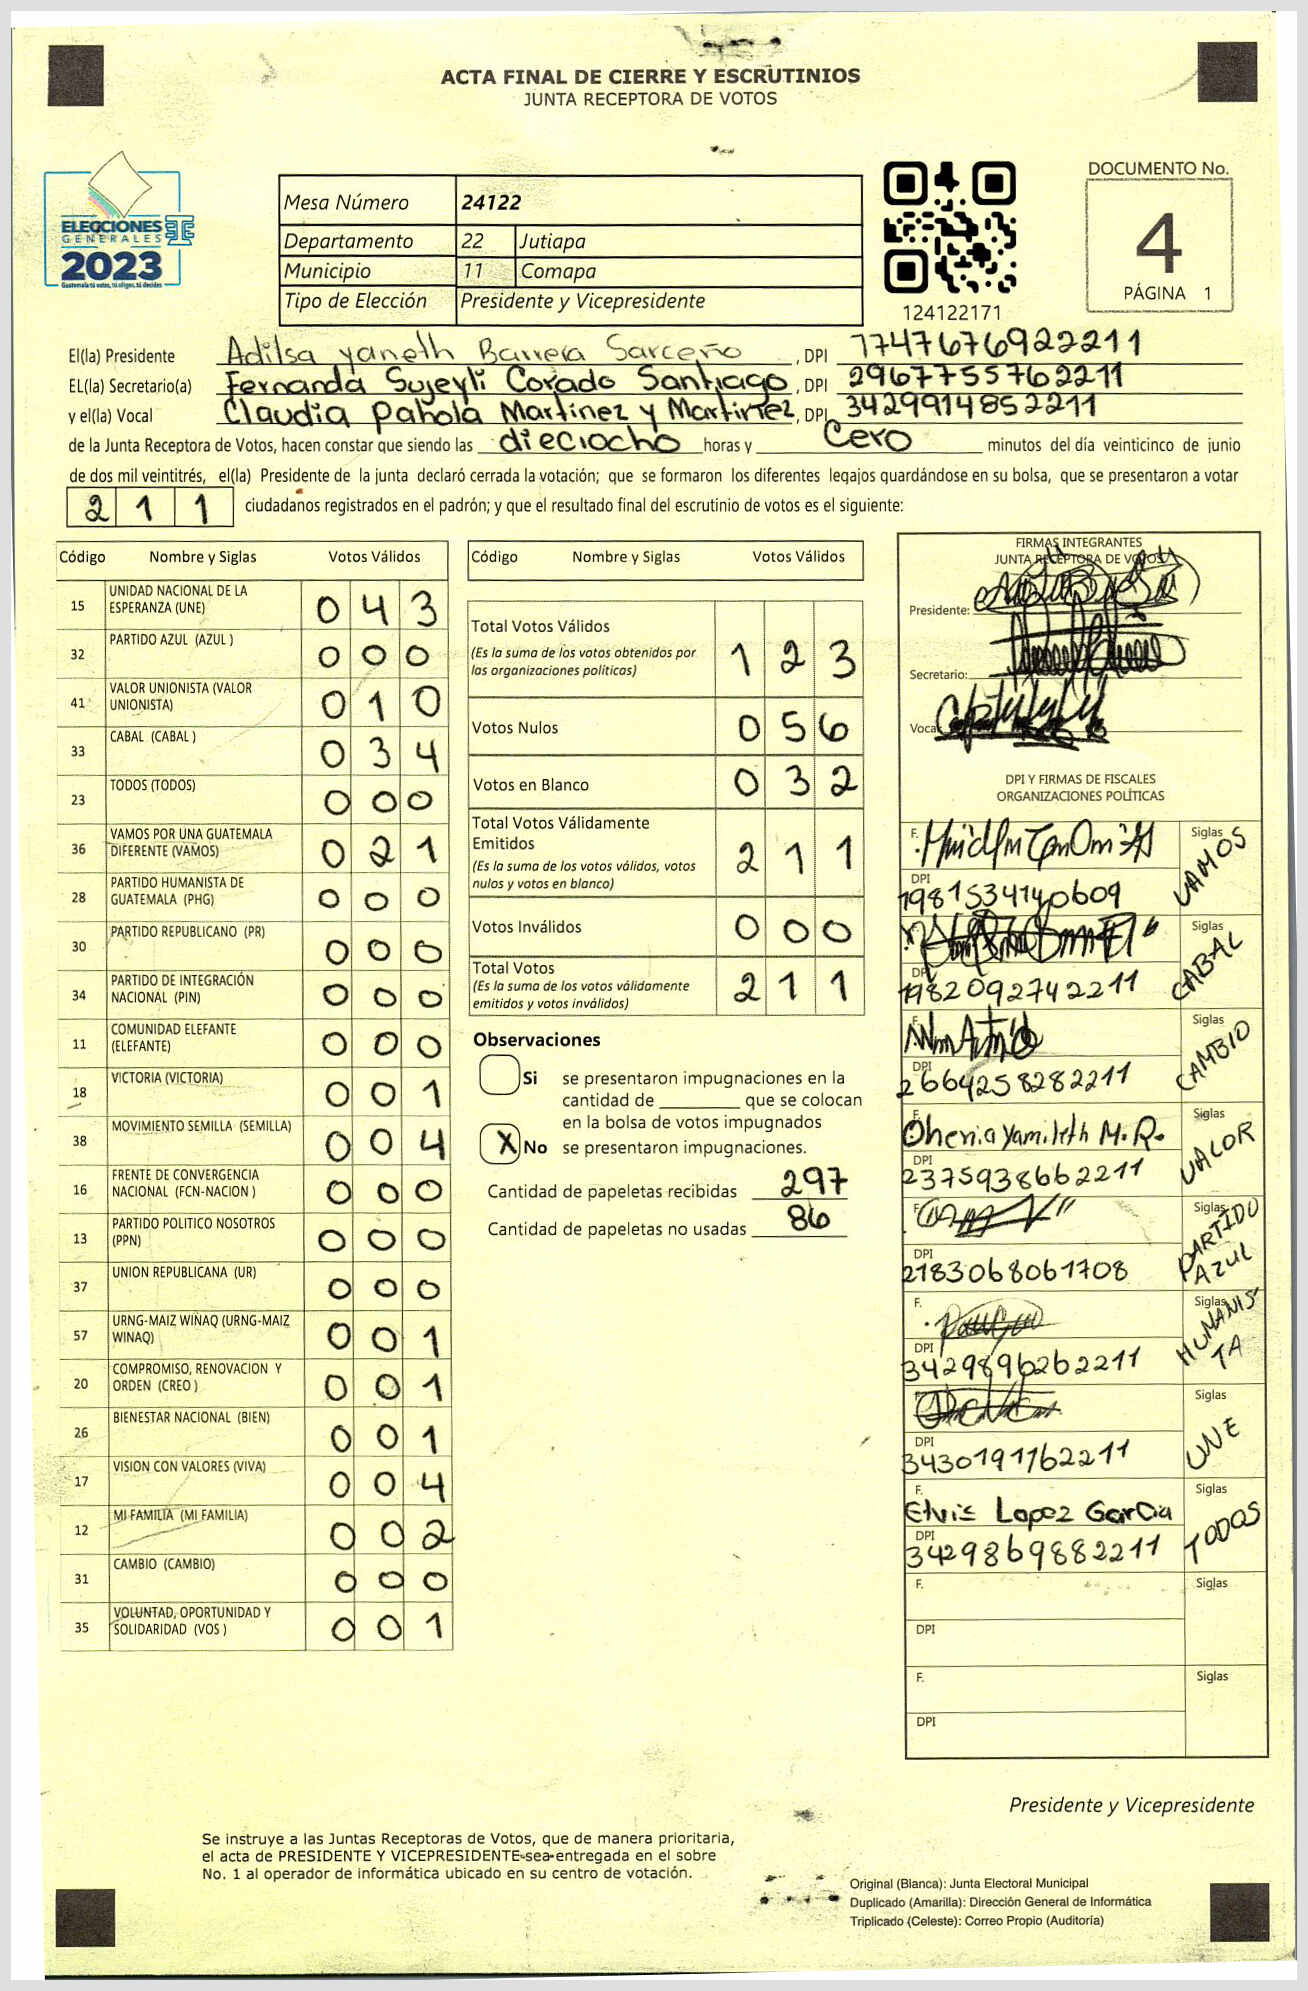 ACTA FINAL DE CIERRE Y ESCRUTINIOS
JUNTA RECEPTORA DE VOTOS
ELECCIONES
GENERALES
2023
Guatemala tú votas, tú eliges, tú decides
Mesa Número 24122
Departamento 22 Jutiapa
Municipio 11 Comapa
Tipo de Elección Presidente y Vicepresidente
124122171
DOCUMENTO No.
4
PÁGINA 1
El(la) Presidente Adilsa yaneth Barrera Sarceño, DPI 1747676922211
EL(la) Secretario(a) Fernanda Sujeyli Corado Santiago, DPI 2967755762211
y el(la) Vocal Claudia Pahola Martinez y Martinez, DPI 3429914852211
de la Junta Receptora de Votos, hacen constar que siendo las dieciocho horas y Cero minutos del día veinticinco de junio
de dos mil veintitrés, el(la) Presidente de la junta declaró cerrada la votación; que se formaron los diferentes legajos quardándose en su bolsa, que se presentaron a votar
211 ciudadanos registrados en el padrón; y que el resultado final del escrutinio de votos es el siguiente:
Código Nombre y Siglas Votos Válidos
15 UNIDAD NACIONAL DE LA
ESPERANZA (UNE) 043
32 PARTIDO AZUL (AZUL ) 000
41 VALOR UNIONISTA (VALOR
UNIONISTA) 010
33 CABAL (CABAL ) 034
23 TODOS (TODOS) 000
36 VAMOS POR UNA GUATEMALA
DIFERENTE (VAMOS) 021
28 PARTIDO HUMANISTA DE
GUATEMALA (PHG) 000
30 PARTIDO REPUBLICANO (PR) 000
34 PARTIDO DE INTEGRACIÓN
NACIONAL (PIN) 000
11 COMUNIDAD ELEFANTE
(ELEFANTE) 000
18 VICTORIA (VICTORIA) 001
38 MOVIMIENTO SEMILLA (SEMILLA) 004
16 FRENTE DE CONVERGENCIA
NACIONAL (FCN-NACION ) 000
13 PARTIDO POLITICO NOSOTROS
(PPN) 000
37 UNION REPUBLICANA (UR) 000
57 URNG-MAIZ WINAQ (URNG-MAIZ
WINAQ) 001
20 COMPROMISO, RENOVACION Y
ORDEN (CREO ) 001
26 BIENESTAR NACIONAL (BIEN) 001
17 VISION CON VALORES (VIVA) 004
12 MI FAMILIA (MI FAMILIA) 002
31 CAMBIO (CAMBIO) 000
35 VOLUNTAD, OPORTUNIDAD Y
SOLIDARIDAD (VOS ) 001
Código Nombre y Siglas Votos Válidos
Total Votos Válidos
(Es la suma de los votos obtenidos por
las organizaciones políticas) 123
Votos Nulos 056
Votos en Blanco 032
Total Votos Válidamente
Emitidos
(Es la suma de los votos válidos, votos
nulos y votos en blanco) 211
Votos Inválidos 000
Total Votos
(Es la suma de los votos válidamente
emitidos y votos inválidos) 211
Observaciones
Si se presentaron impugnaciones en la
cantidad de ________ que se colocan
en la bolsa de votos impugnados
X No se presentaron impugnaciones.
Cantidad de papeletas recibidas 297
Cantidad de papeletas no usadas 86
FIRMAS INTEGRANTES
JUNTA RECEPTORA DE VOTOS
Presidente:
Secretario:
Vocal
DPI Y FIRMAS DE FISCALES
ORGANIZACIONES POLÍTICAS
F. Siglas VAMOS
DPI 1981534140609
Siglas CABAL
DPI 1982092742211
F. Siglas CAMBIO
DPI 2664258282211
F. Ohenia Yamileth M.R. Siglas VALOR
DPI 2375938662211
F. Siglas PARTIDO AZUL
DPI 2183068061708
F. Siglas HUMANISTA
DPI 3429896262211
F. Siglas UNE
DPI 3430191762211
F. Elvis Lopez Garcia Siglas TODOS
DPI 3429869882211
F. Siglas
DPI
F. Siglas
DPI
Presidente y Vicepresidente
Se instruye a las Juntas Receptoras de Votos, que de manera prioritaria,
el acta de PRESIDENTE Y VICEPRESIDENTE sea entregada en el sobre
No. 1 al operador de informática ubicado en su centro de votación.
Original (Blanca): Junta Electoral Municipal
Duplicado (Amarilla): Dirección General de Informática
Triplicado (Celeste): Correo Propio (Auditoría)